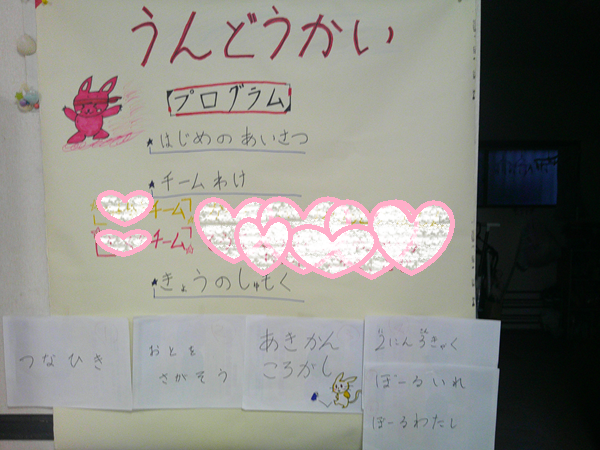 うんどうかい
プログラム
★はじめのあいさつ
★チームわけ
チーム
チーム
★きょうのしゅもく
つなひき
おとを
さがそう
あきかん
ころがし
2にん3きゃく
ぼーるいれ
ぼーるわたし